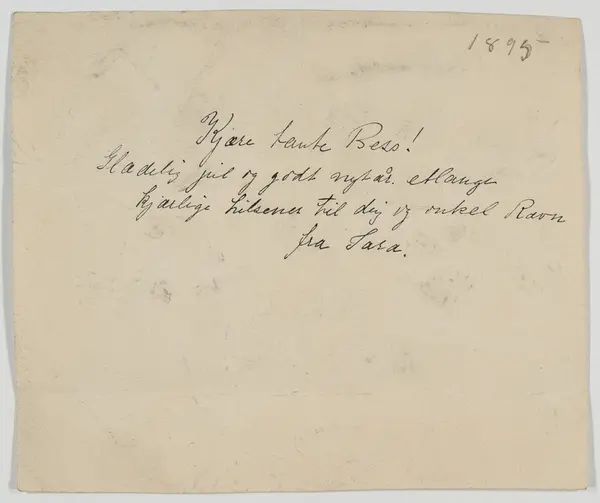 1895
Kjære tante Bess!
Glædelig jul og godt nytår. Mange
kjærlige hilsener til dig og onkel Ravn
fra Sara.